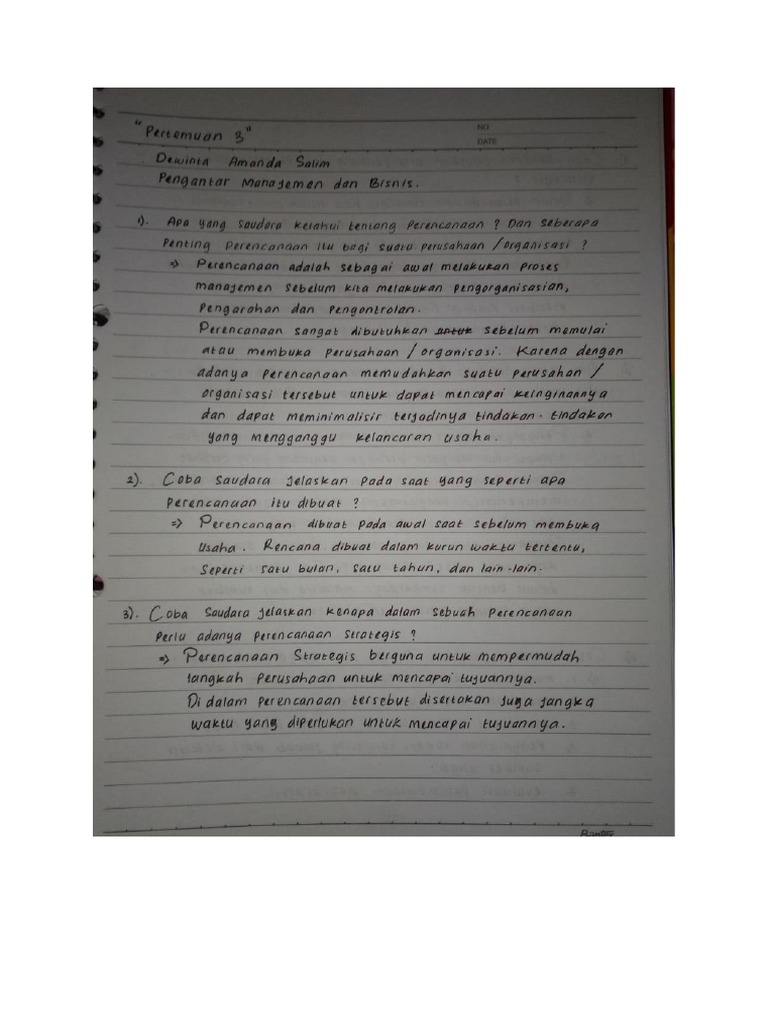 "Pertemuan 3"
NO
DATE
Dewinta Amanda Salim
Pengantar Manajemen dan Bisnis.
1). Apa yang saudara ketahui tentang Perencanaan ? Dan seberapa
Penting Perencanaan itu bagi suatu perusahaan / organisasi ?
=> Perencanaan adalah sebagai awal melakukan proses
manajemen sebelum kita melakukan pengorganisasian,
Pengarahan dan Pengontrolan.
Perencanaan sangat dibutuhkan untuk sebelum memulai
atau membuka perusahaan / organisasi. Karena dengan
adanya perencanaan memudahkan suatu perusahan /
organisasi tersebut untuk dapat mencapai keinginannya
dan dapat meminimalisir terjadinya tindakan-tindakan
yang mengganggu kelancaran usaha.
2). Coba saudara jelaskan pada saat yang seperti apa
Perencanaan itu dibuat ?
=> Perencanaan dibuat pada awal saat sebelum membuka
usaha. Rencana dibuat dalam kurun waktu tertentu,
seperti satu bulan, satu tahun, dan lain-lain.
3). Coba saudara jelaskan kenapa dalam sebuah Perencanaan
Perlu adanya perencanaan strategis ?
=> Perencanaan Strategis berguna untuk mempermudah
langkah perusahaan untuk mencapai tujuannya.
Di dalam perencanaan tersebut disertakan juga jangka
waktu yang diperlukan untuk mencapai tujuannya.